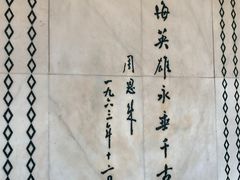 海英雄永垂千古
周恩来
一九六三年十二月